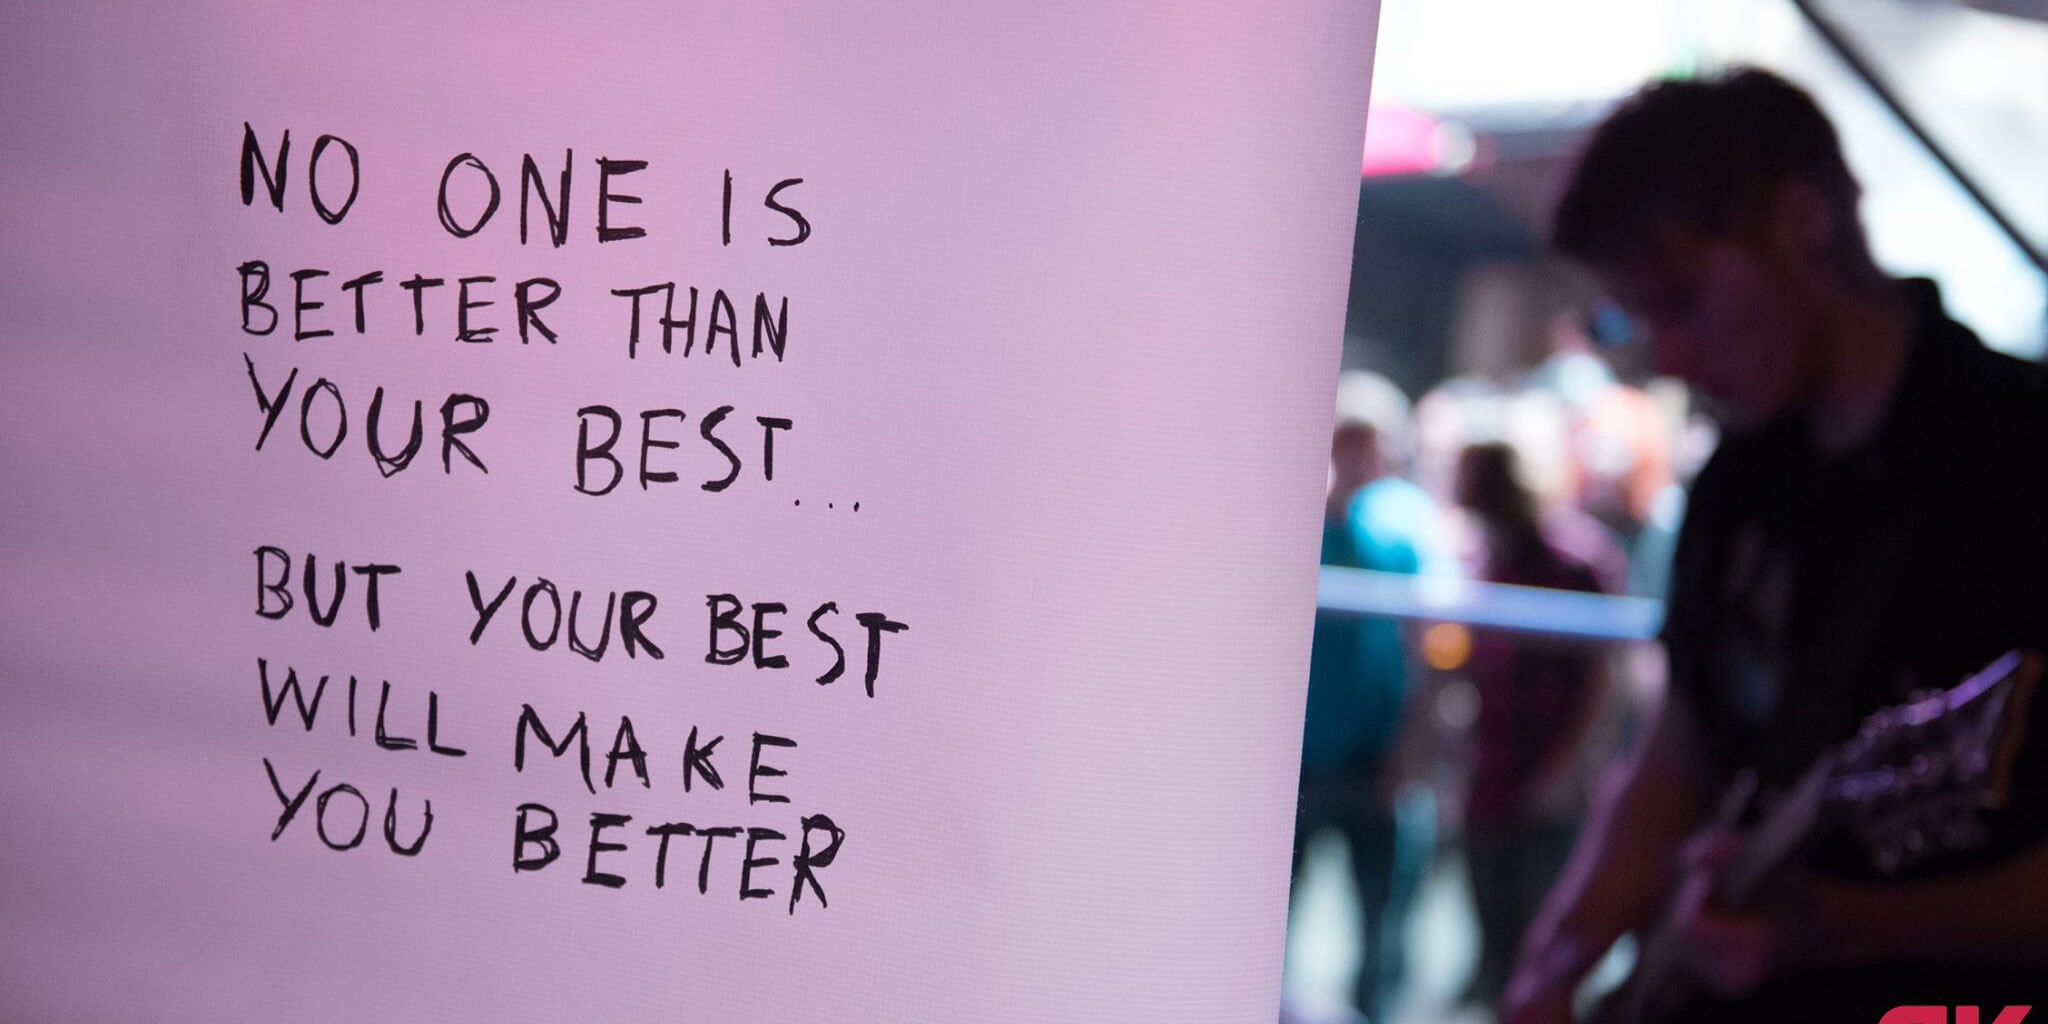 NO ONE IS
BETTER THAN
YOUR BEST...
BUT YOUR BEST
WILL MAKE
YOU BETTER